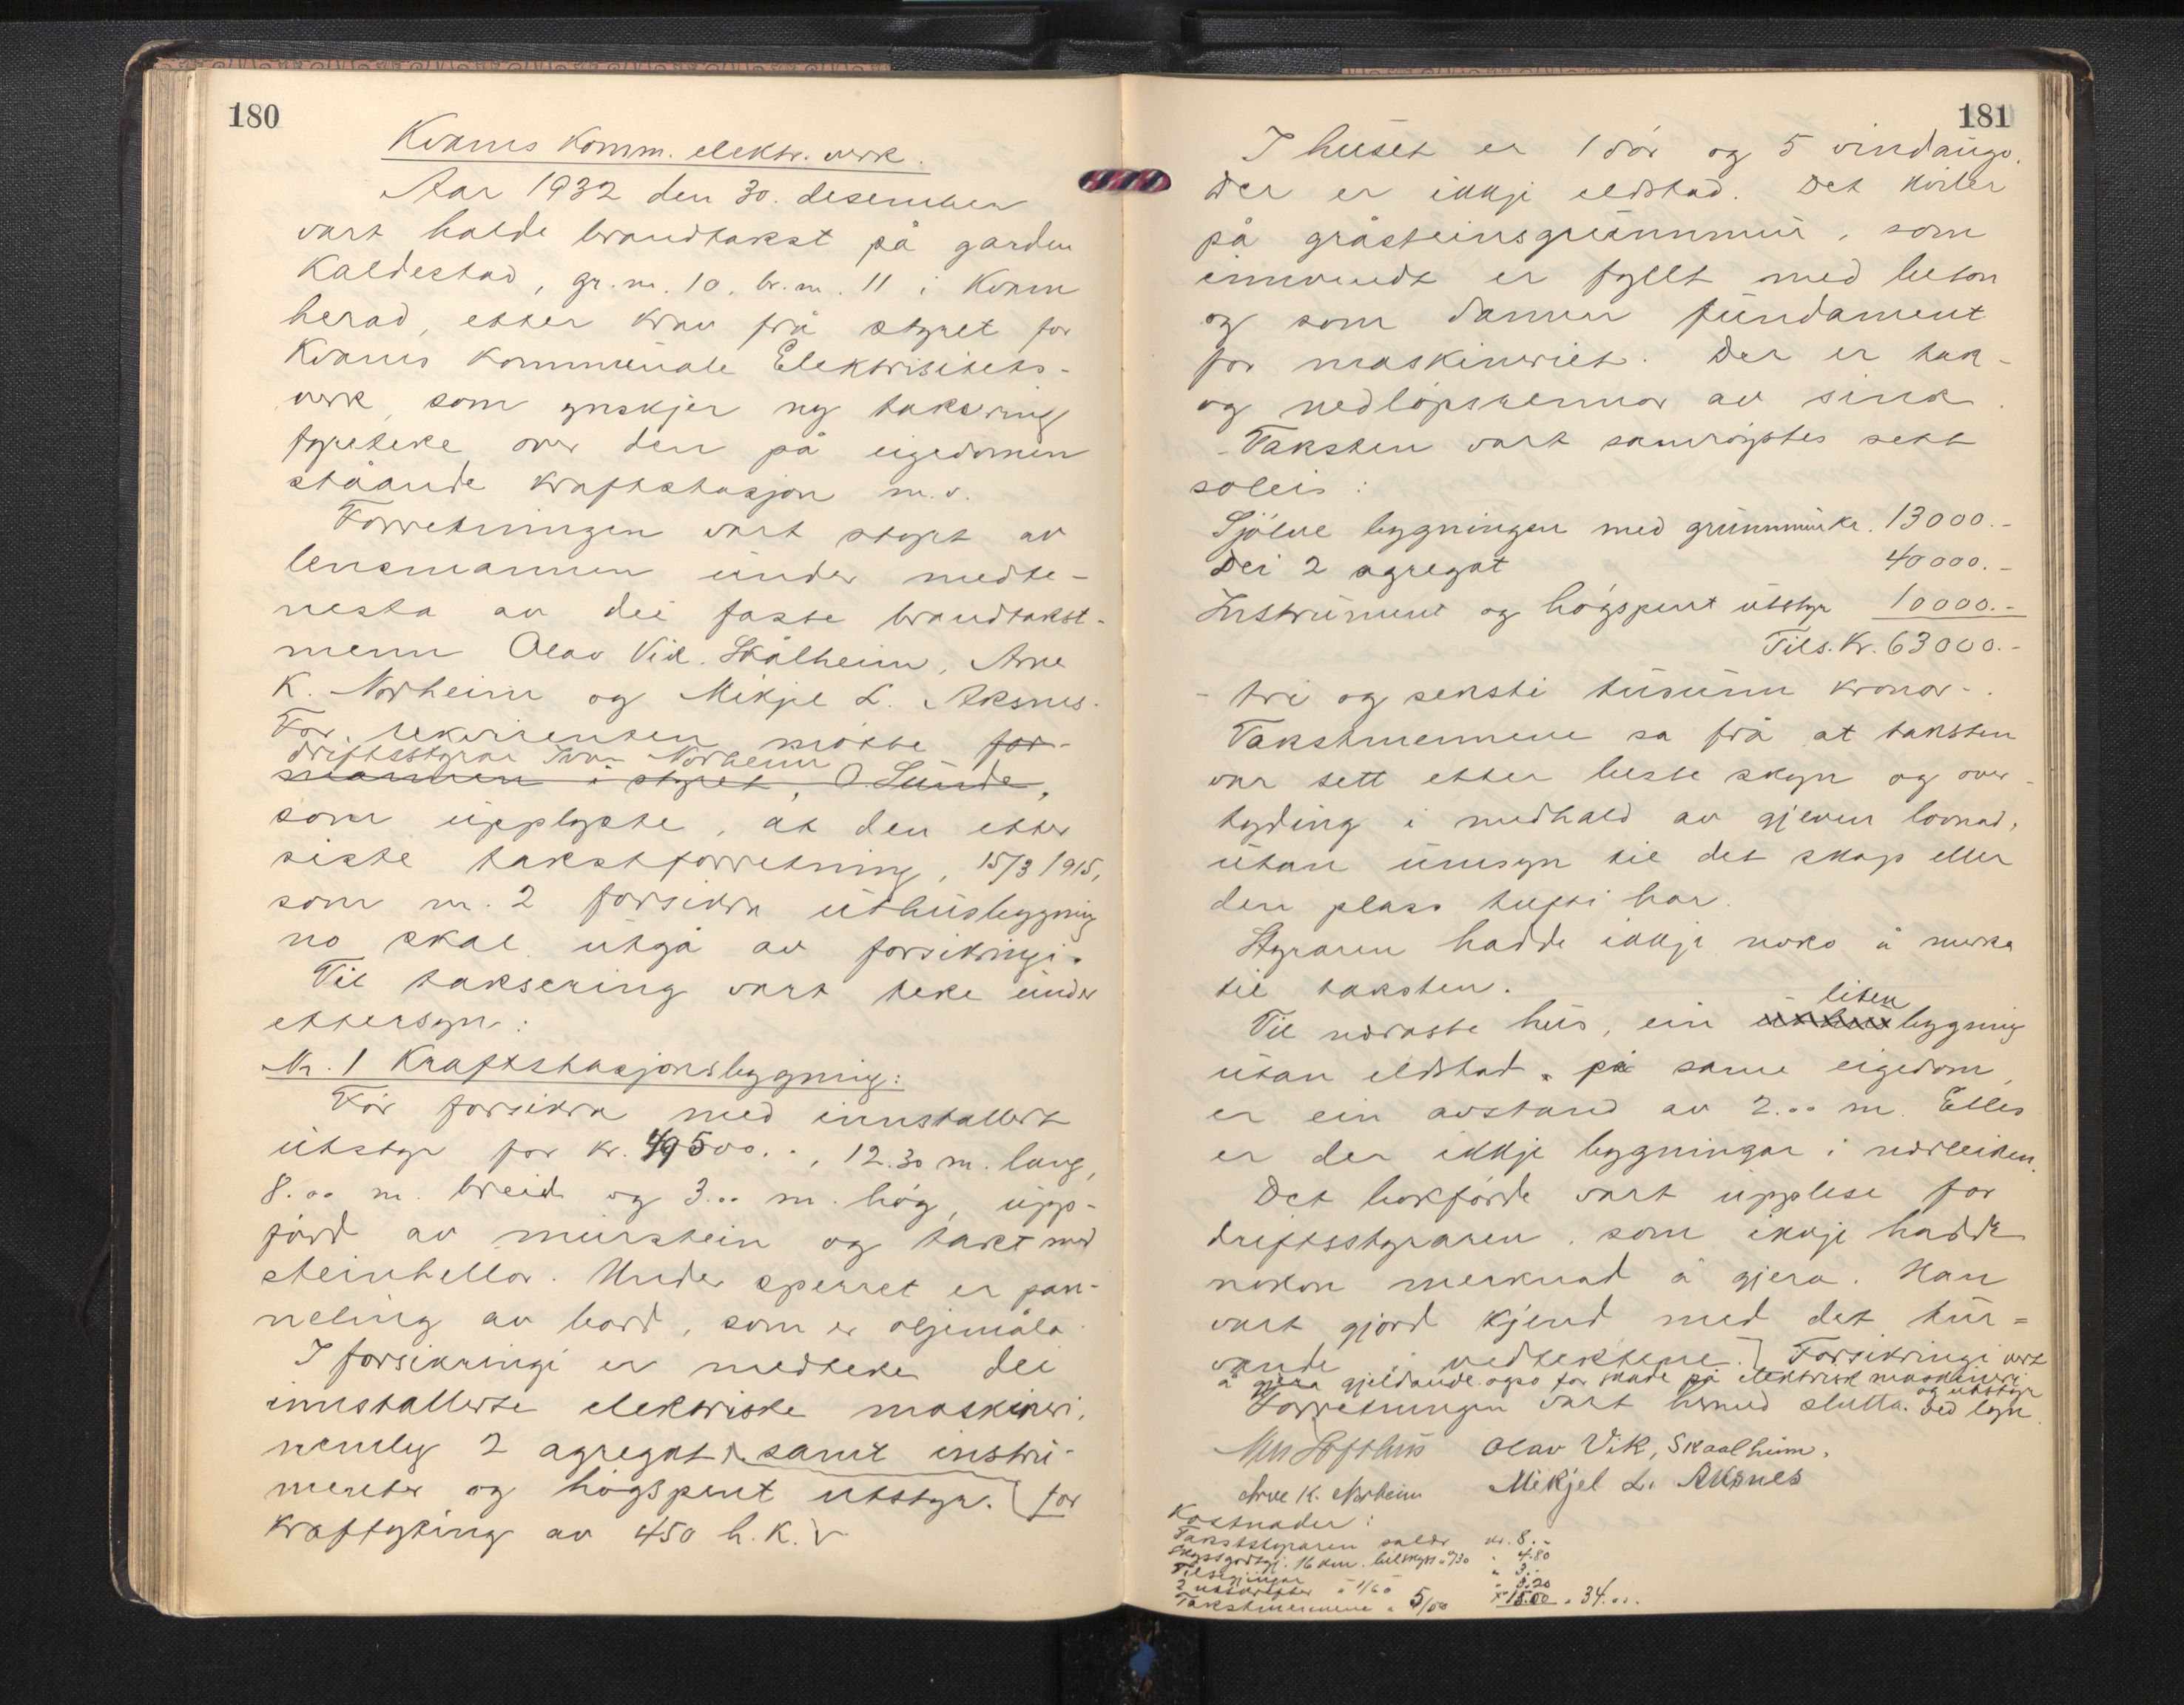 180
Kvams komm. elektr. verk.
Aar 1932 den 30. desember
vart halde brandtakst på garden
Kaldestad, gr. nr. 10, br. nr. 11 i Kvam
herad, etter krav frå styret for
Kvams kommunale Elektrisitets-
verk, som ynskjer ny taksering
fyreteke over den på eigedomen
ståande kraftstasjon m.v.
Forretningen vart styrt av
lensmannen under medte-
nesta av dei faste brandtakst-
menn Olav Vik. Skålheim, Arne
K. Norheim og Mikjel L. Aksnes.
For rekvirenten møtte for-
driftsstyrar Ivar Norheim
mannen i styret, O. Sunde,
som upplyste, at den etter
siste takstforretning, 15/3 1915,
som nr. 2 forsikra uthusbygning
no skal utgå av forsikringi.
Til taksering vart teke under
ettersyn:
Nr. 1 Kraftstasjonsbygning:
Før forsikra med innstallert
utstyr for kr. 49500.-, 12.30 m. lang,
8.00 m. breid og 3.00 m. høg, upp-
førd av murstein og takt med
steinhellor. Under sperret er pan-
neling av bord, som er oljemåla.
I forsikringi er medteke dei
innstallerte elektriske maskineri,
nemleg 2 agregat samt instru-
menter og høgspent utstyr. for
kraftyting av 450 h.K.
181
I huset er 1 dør og 5 vindaugo.
Der er ikkje eldstad. Det kviler
på gråsteinsgrunnmur, som
innvendt er fyllt med beton
og som danner fundament
for maskineriet. Der er tak-
og nedløpsrennor av sink.
Taksten vart samrøystes sett
soleis:
Sjølve bygningen med grunnmur kr. 13000.-
Dei 2 agregat 40000.-
Instrument og høgspent utstyr 10000.-
Tils. Kr. 63000.-
- tri og seksti tusunn kronor -.
Takstmennene sa frå at taksten
var sett etter beste skyn og over-
tyding i medhald av gjeven lovnad,
utan umsyn til det skap eller
den plass tufti har.
Styraren hadde ikkje noko å merka
til taksten.
liten
Til næraste hus, ein uthus bygning
utan eldstad på same eigedom,
er ein avstand av 2.00 m. Elles
er der ikkje bygningar i nærleiken.
Det bokførde vart upplese for
driftsstyraren, som ikkje hadde
nokon merknad å gjera. Han
vart gjord kjend med det tur-
vande i vedtektene. Forsikringi vert
å gjera gjeldande ogso for skade på elektrisk maskineri
og utstyr
Forretningen vart hermed slutta. ved lyn.
Olav Vik, Skaalheim.
Arne K. Norheim Mikjel L. Aksnes
Kostnader:
Takststyraren salær kr. 8.-
Skyssgodtgj. 16 km. bilskyss a /30 " 4.80
" 3.-
2 utskrifter a 1/60 " 3.20
Takstmennene a 5/00 " 15.00 = 34.00.